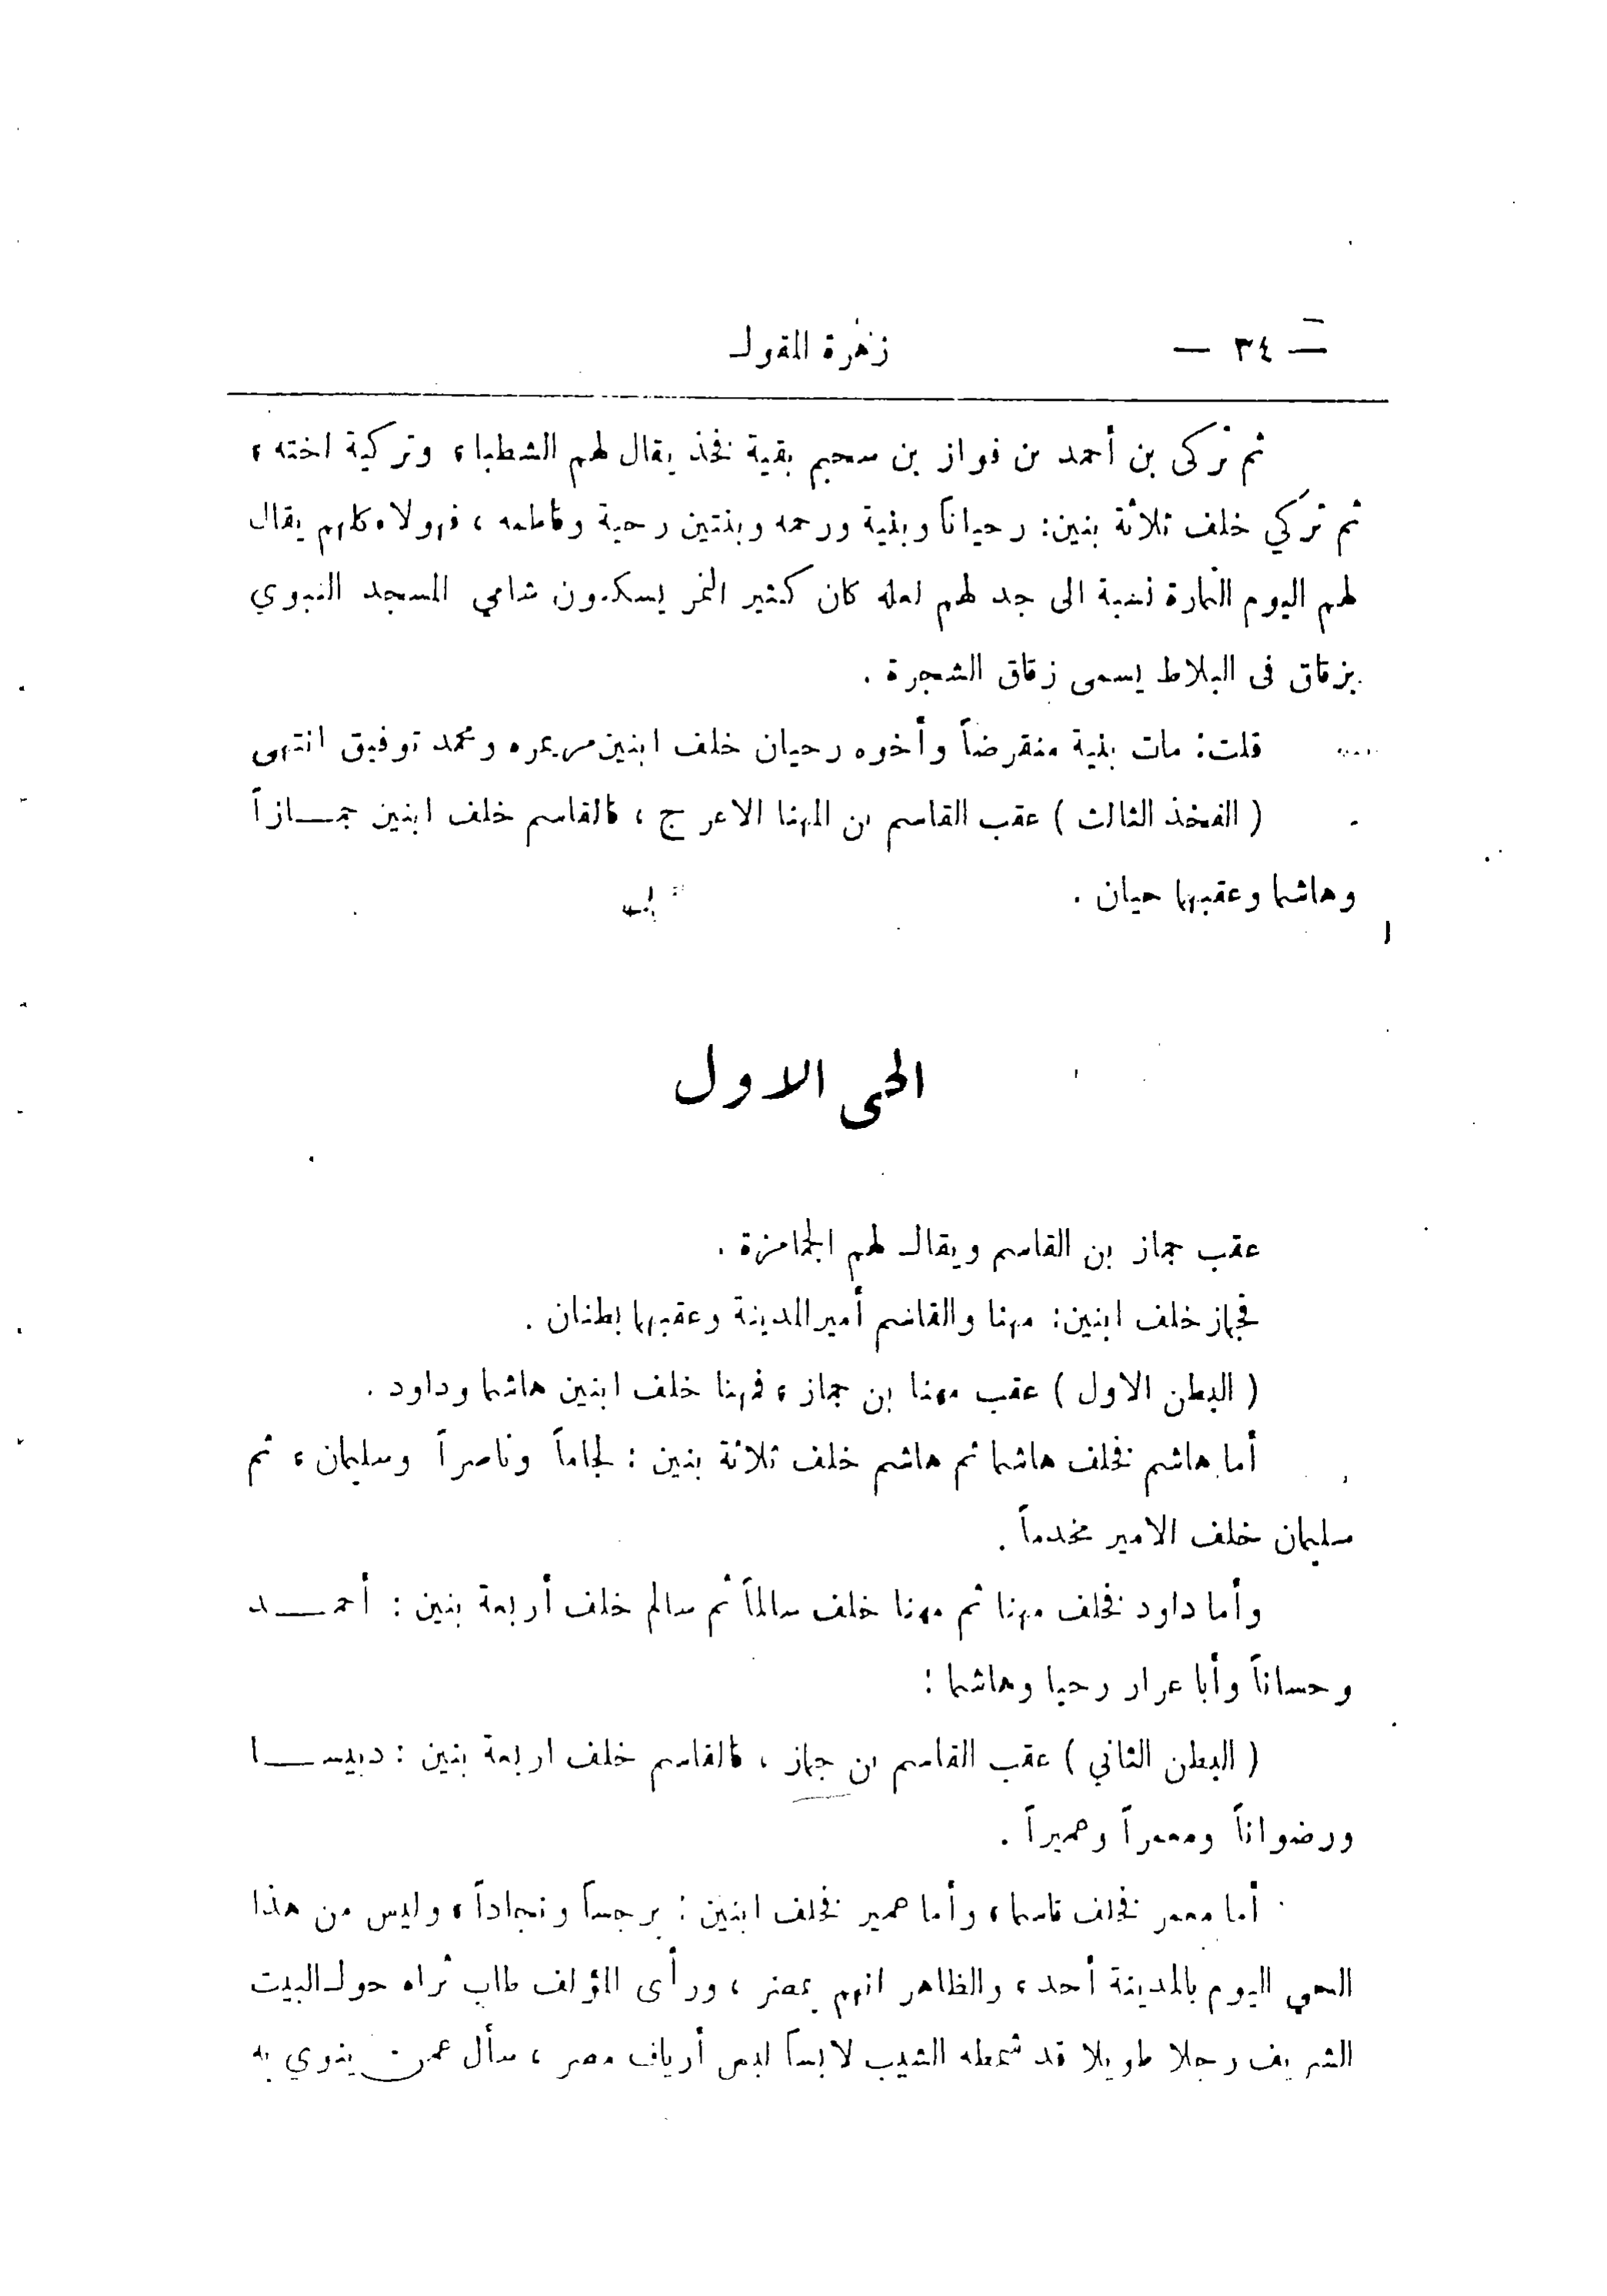 — ٣٤ — زهرة المقول
ثم تركى بن أحمد بن فواز بن سحيم بقية فخذ يقال لهم الشطباء وتركية اخته ،
ثم تركي خلف ثلاثة بنين: رحياناً وبنية ورحمه وبنتين رحية وفاطمه ، فهولاء كلهم يقال
لهم اليوم النمارة نسبة الى جد لهم لعله كان كثير النمر يسكنون شامي المسجد النبوي
بزقاق فى البلاط يسمى زقاق الشجرة .
قلت: مات بنية منقرضاً وأخوه رحيان خلف ابنين مريمره ومحمد توفيق انتهى
( الفخذ الثالث ) عقب القاسم بن المهنا الاعرج ، فالقاسم خلف ابنين جمـــازاً
وهاشما وعقبهما حيان .
الحى الاول
عقب جماز بن القاسم ويقال لهم الجمامزة .
فجماز خلف ابنين: مهنا والقاسم أمير المدينة وعقبهما بطنان .
( البطن الاول ) عقب مهنا بن جماز ، فمهنا خلف ابنين هاشما وداود .
أما هاشم فخلف هاشما ثم هاشم خلف ثلاثة بنين : لجاماً وناصراً وسليمان ، ثم
سليمان خلف الامير مخدماً .
وأما داود فخلف مهنا ثم مهنا خلف سالماً ثم سالم خلف أربعة بنين : أحمـــد
وحساناً وأبا عرار رحيا وهاشما :
( البطن الثاني ) عقب القاسم بن جماز ، فالقاسم خلف اربعة بنين : دبيســـا
ورضواناً ومعمراً وعميراً .
أما معمر فخلف قاسما ، وأما عمير فخلف ابنين : برجساً ونجاداً ، وليس من هذا
الحي اليوم بالمدينة أحد ، والظاهر انهم بمصر ، ورأى المؤلف طاب ثراه حول البيت
الشريف رجلا طويلا قد شمطه الشيب لابساً لبس أرياف مصر ، سأل عمن ينوي به